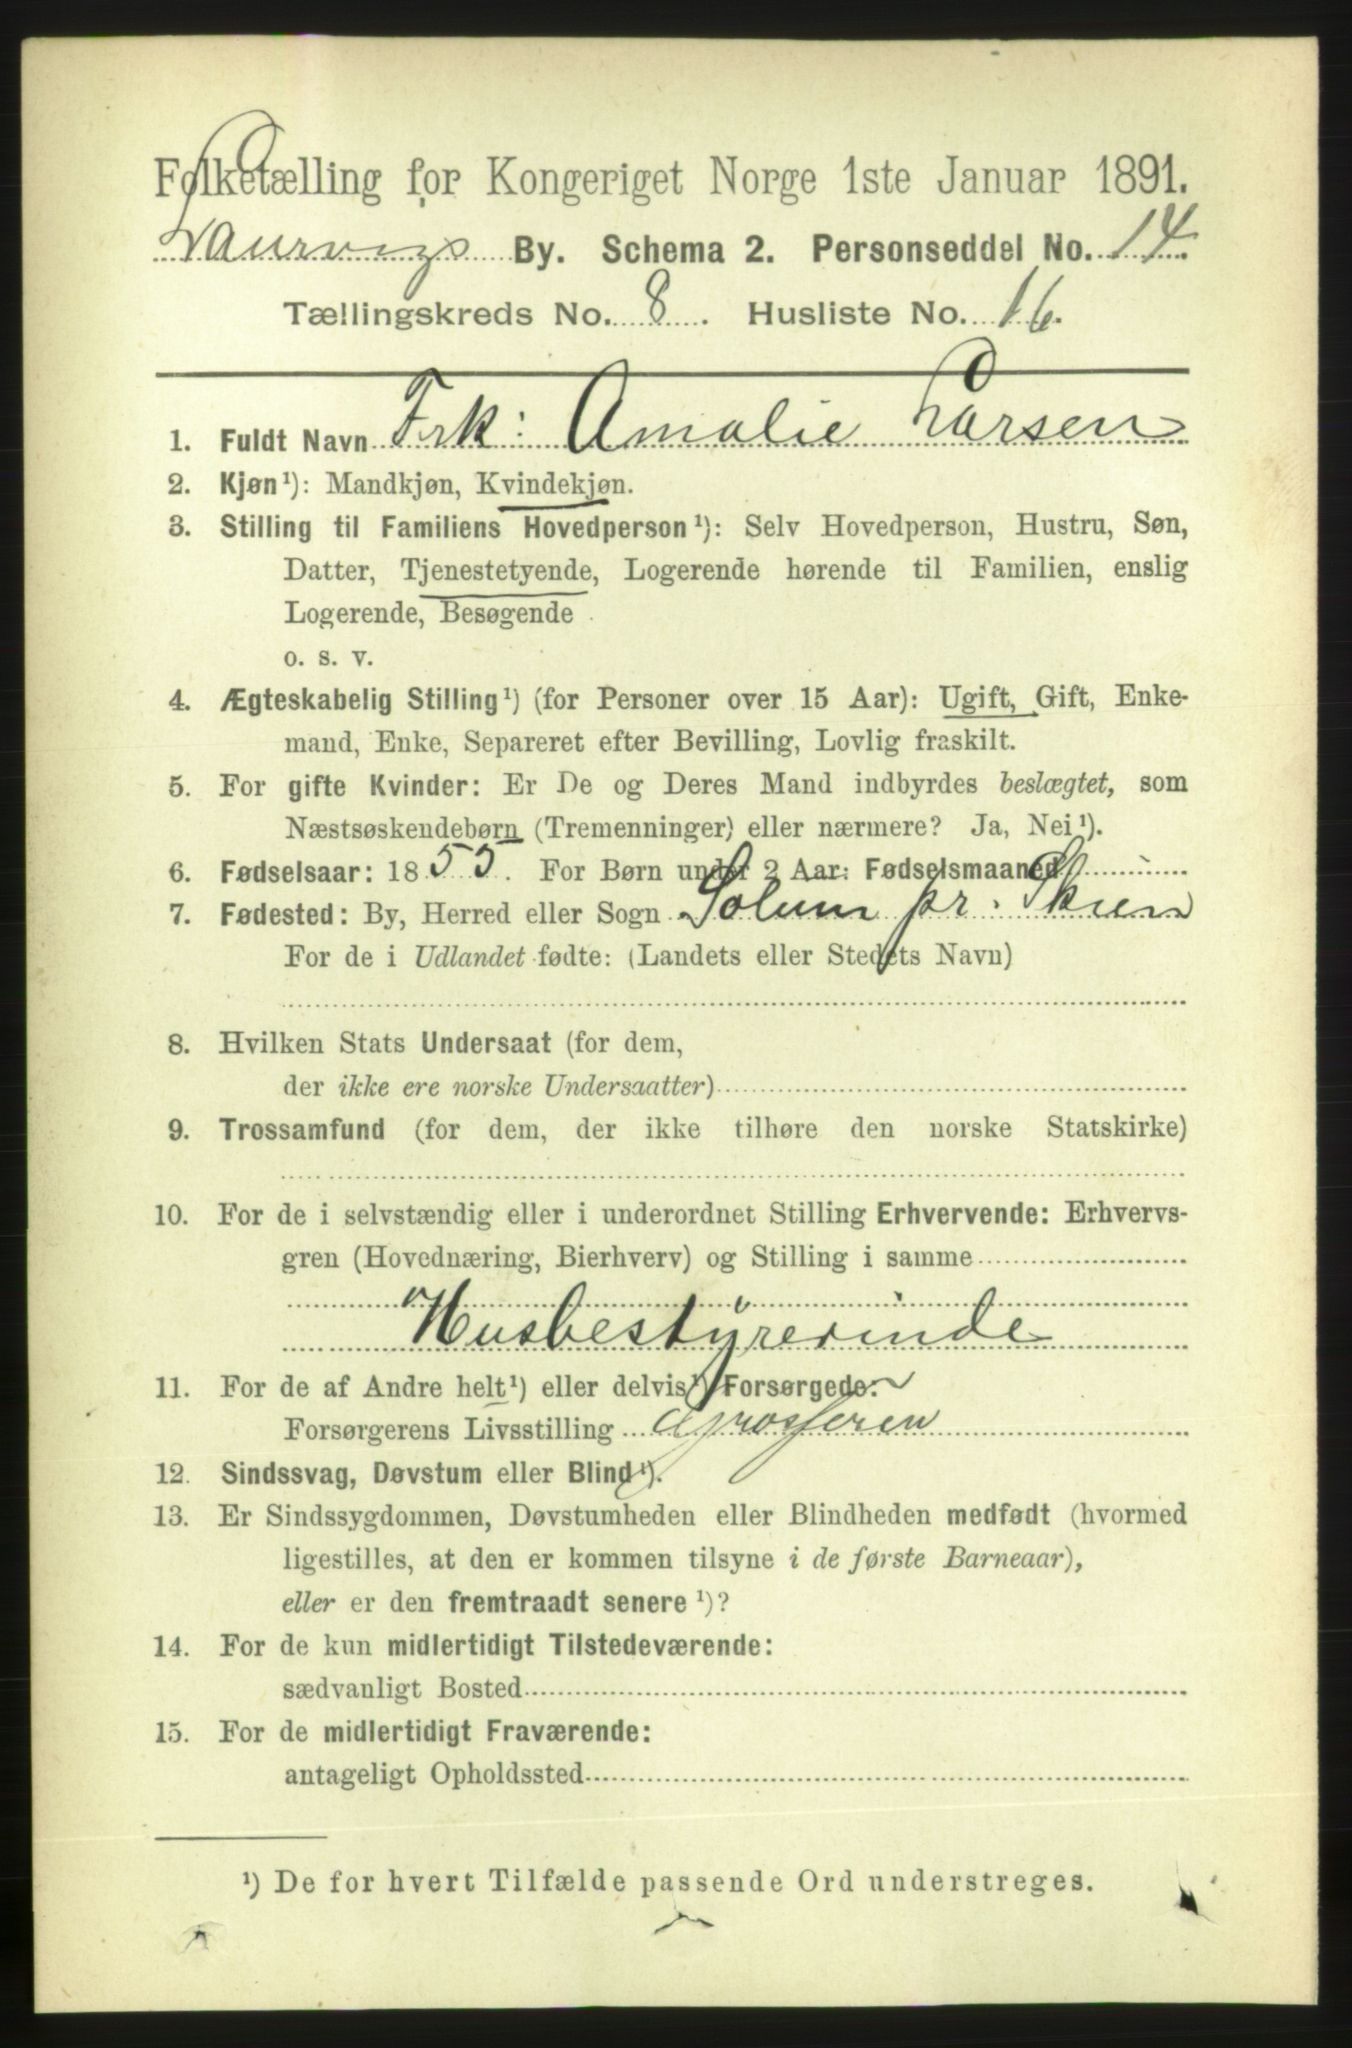 Folketælling for Kongeriget Norge 1ste Januar 1891.
Laurvigs By. Schema 2. Personseddel No. 14.
Tællingskreds No. 8. Husliste No. 16.
1. Fuldt Navn Frk: Amalie Larsen
2. Kjøn¹): Mandkjøn, Kvindekjøn.
3. Stilling til Familiens Hovedperson¹): Selv Hovedperson, Hustru, Søn,
Datter, Tjenestetyende, Logerende hørende til Familien, enslig
Logerende, Besøgende
o. s. v.
4. Ægteskabelig Stilling¹) (for Personer over 15 Aar): Ugift, Gift, Enke-
mand, Enke, Separeret efter Bevilling, Lovlig fraskilt.
5. For gifte Kvinder: Er De og Deres Mand indbyrdes beslægtet, som
Næstsøskendebørn (Tremenninger) eller nærmere? Ja, Nei¹).
6. Fødselsaar: 1855. For Børn under 2 Aar: Fødselsmaaned
7. Fødested: By, Herred eller Sogn Solum pr. Skien
For de i Udlandet fødte: (Landets eller Stedets Navn)
8. Hvilken Stats Undersaat (for dem,
der ikke ere norske Undersaatter)
9. Trossamfund (for dem, der ikke tilhøre den norske Statskirke)
10. For de i selvstændig eller i underordnet Stilling Erhvervende: Erhvervs-
gren (Hovednæring, Bierhverv) og Stilling i samme
Husbestÿrerinde
11. For de af Andre helt¹) eller delvis¹) Forsørgede:
Forsørgerens Livsstilling
12. Sindssvag, Døvstum eller Blind¹).
13. Er Sindssygdommen, Døvstumheden eller Blindheden medfødt (hvormed
ligestilles, at den er kommen tilsyne i de første Barneaar),
eller er den fremtraadt senere¹)?
14. For de kun midlertidigt Tilstedeværende:
sædvanligt Bosted
15. For de midlertidigt Fraværende:
antageligt Opholdssted
¹) De for hvert Tilfælde passende Ord understreges.